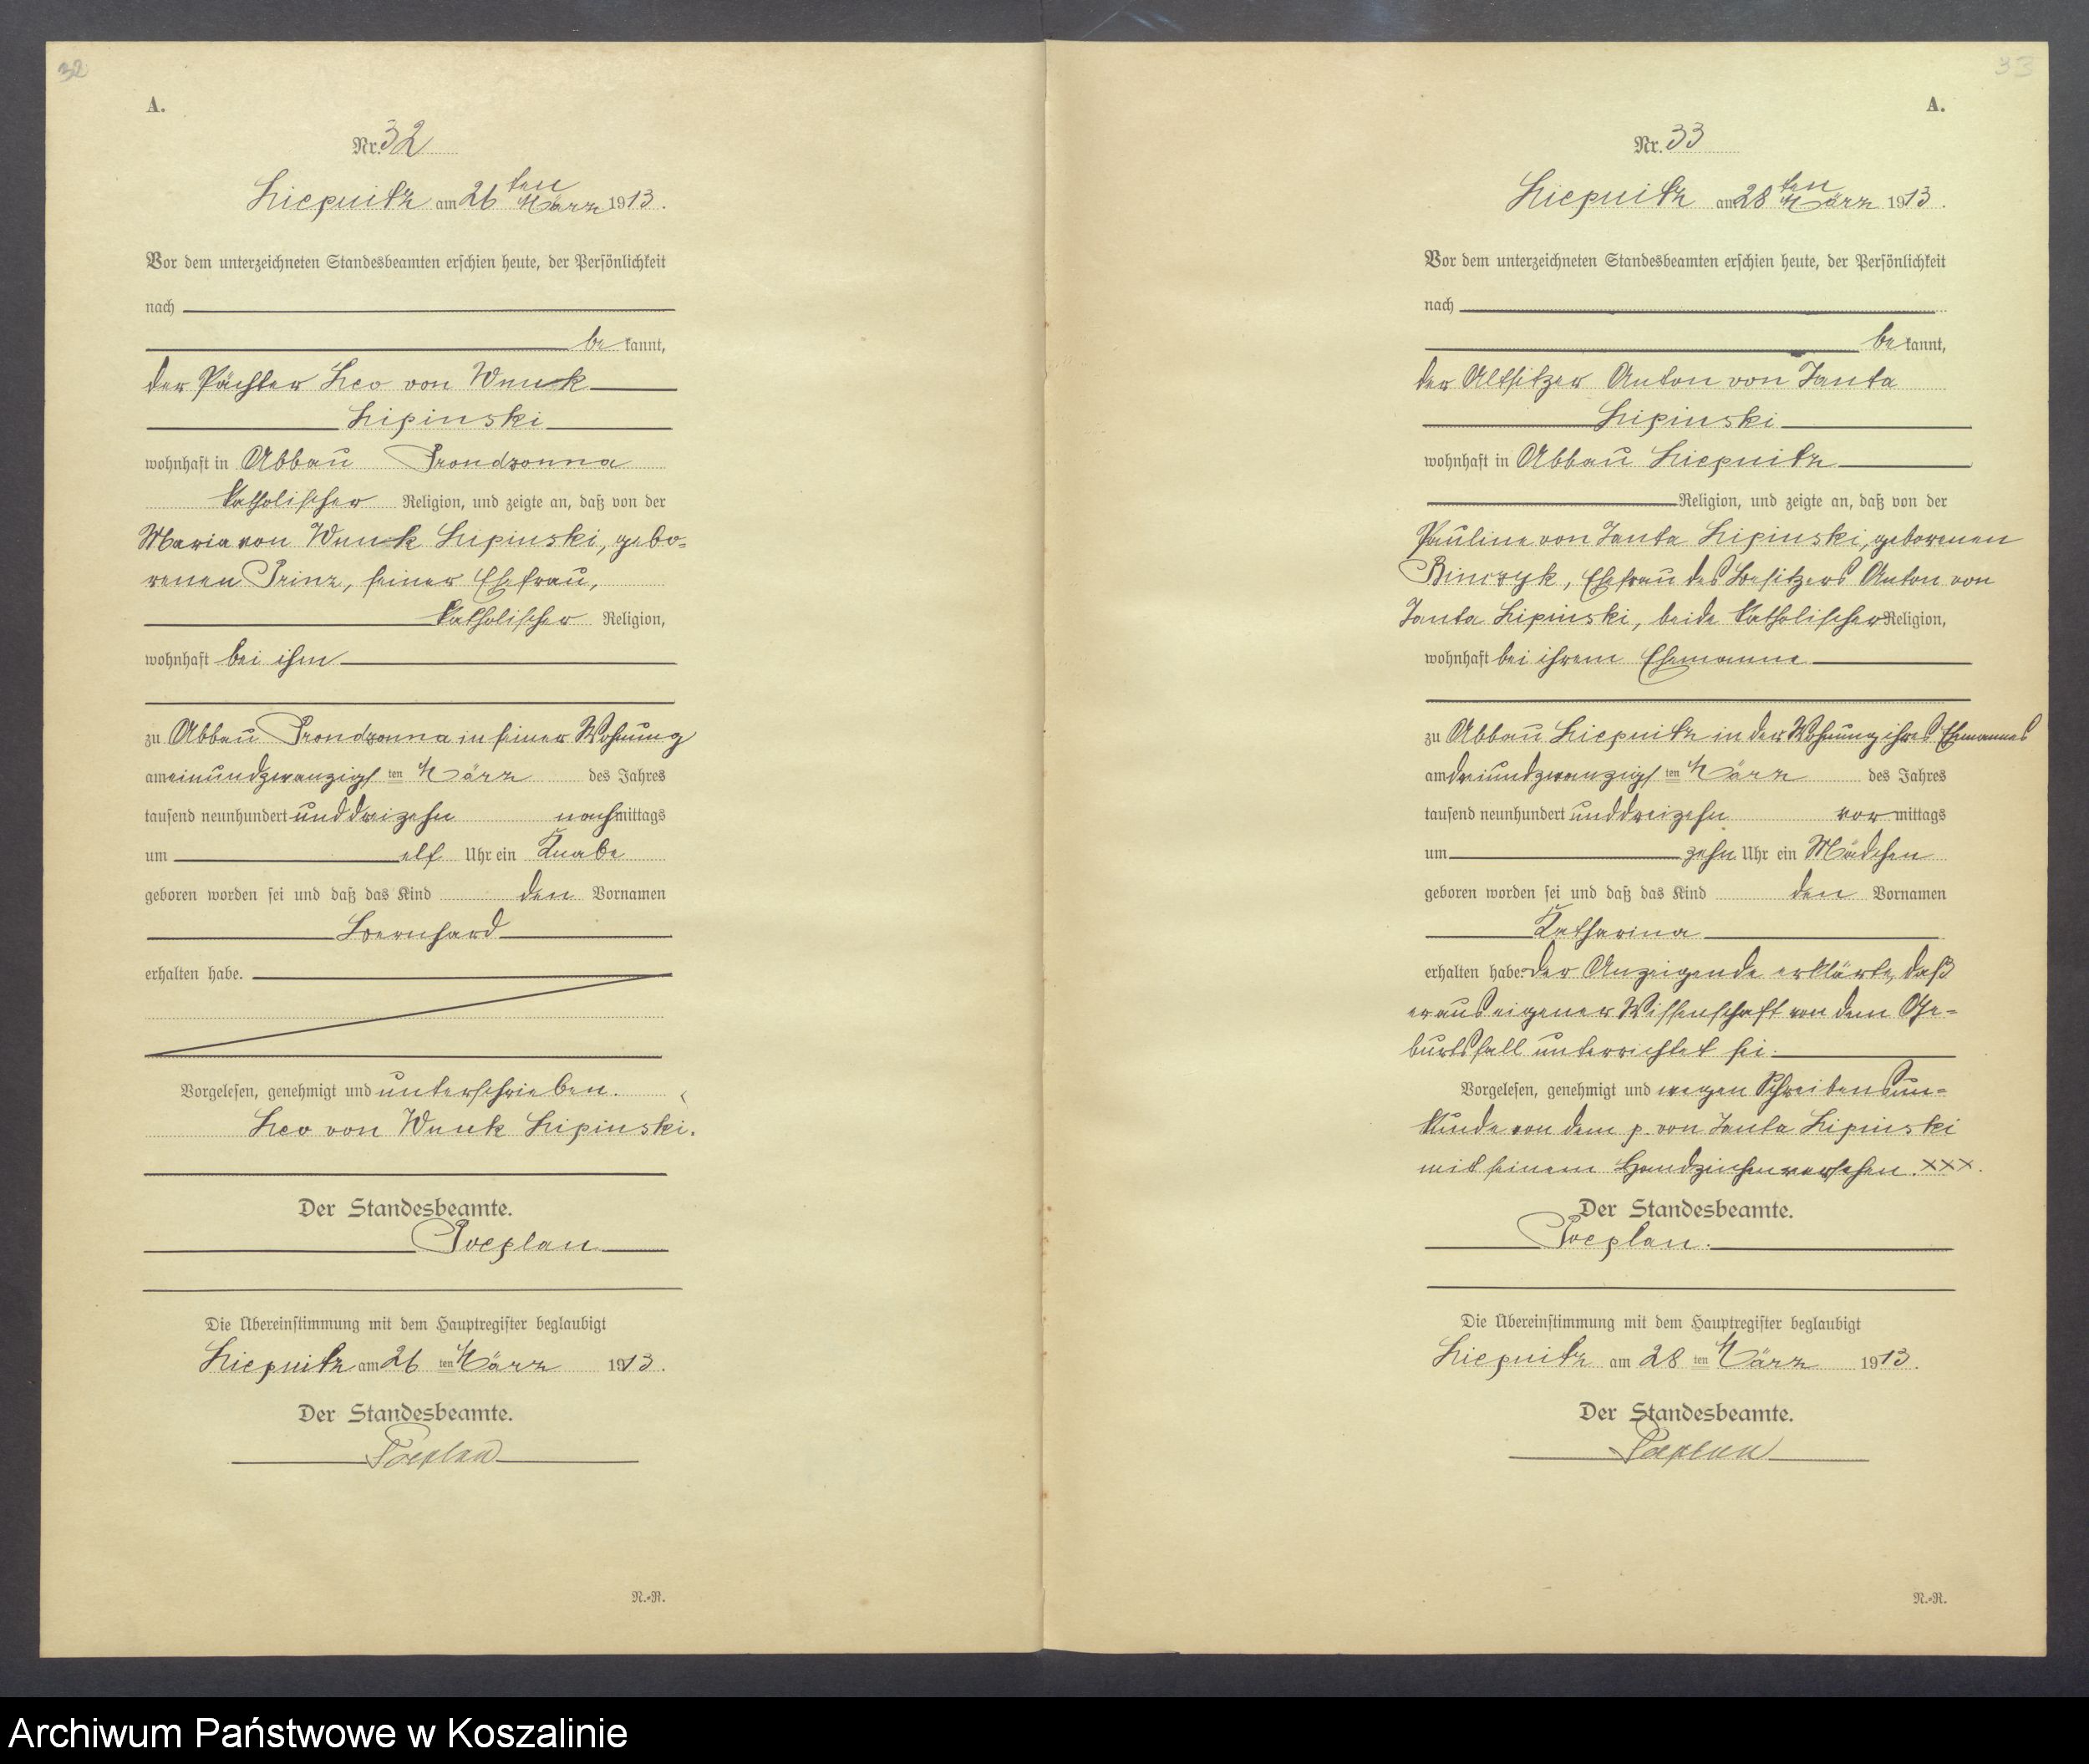 32
A.
Nr. 32
Liepnitz am 26ten März 1913.
Vor dem unterzeichneten Standesbeamten erschien heute, der Persönlichkeit
nach
be kannt,
der Pächter Leo von Wnuk
Lipinski
wohnhaft in Abbau Prondzonna
katholischer Religion, und zeigte an, daß von der
Maria von Wnuk Lipinski, gebo-
renen Prinz, seiner Ehefrau,
katholischer Religion,
wohnhaft bei ihm
zu Abbau Prondzonna in seiner Wohnung
am einundzwanzigsten März des Jahres
tausend neunhundert und dreizehn nachmittags
um elf Uhr ein Knabe
geboren worden sei und daß das Kind den Vornamen
Bernhard
erhalten habe.
Vorgelesen, genehmigt und unterschrieben.
Leo von Wnuk Lipinski.
Der Standesbeamte.
Poeplau
Die Übereinstimmung mit dem Hauptregister beglaubigt
Liepnitz am 26 ten März 1913.
Der Standesbeamte.
Poeplau
N.-R.
33
A.
Nr. 33
Liepnitz am 28ten März 1913.
Vor dem unterzeichneten Standesbeamten erschien heute, der Persönlichkeit
nach
be kannt,
der Altsitzer Anton von Janta
Lipinski
wohnhaft in Abbau Liepnitz
Religion, und zeigte an, daß von der
Pauline von Janta Lipinski, geborenen
Binczyk, Ehefrau des Besitzers Anton von
Janta Lipinski, beide katholischer Religion,
wohnhaft bei ihrem Ehemanne
zu Abbau Liepnitz in der Wohnung ihres Ehemannes
am dreiundzwanzigsten März des Jahres
tausend neunhundert und dreizehn vormittags
um zehn Uhr ein Mädchen
geboren worden sei und daß das Kind den Vornamen
Katharina
erhalten habe. Der Anzeigende erklärte, daß
er aus eigener Wissenschaft von dem Ge-
burtsfall unterrichtet sei.
Vorgelesen, genehmigt und wegen Schreibensun-
kunde von dem p. von Janta Lipinski
mit seinem Handzeichen versehen. XXX.
Der Standesbeamte.
Poeplau.
Die Übereinstimmung mit dem Hauptregister beglaubigt
Liepnitz am 28 ten März 1913.
Der Standesbeamte.
Poeplau
N.-R.
Archiwum Państwowe w Koszalinie